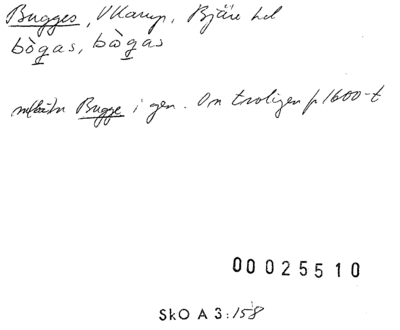 Bugges, V Karup, Bjäre hd
bògas, bògas
mbn Bugge i gen. On troligen p 1600-t
00025510
SkO A 3:158